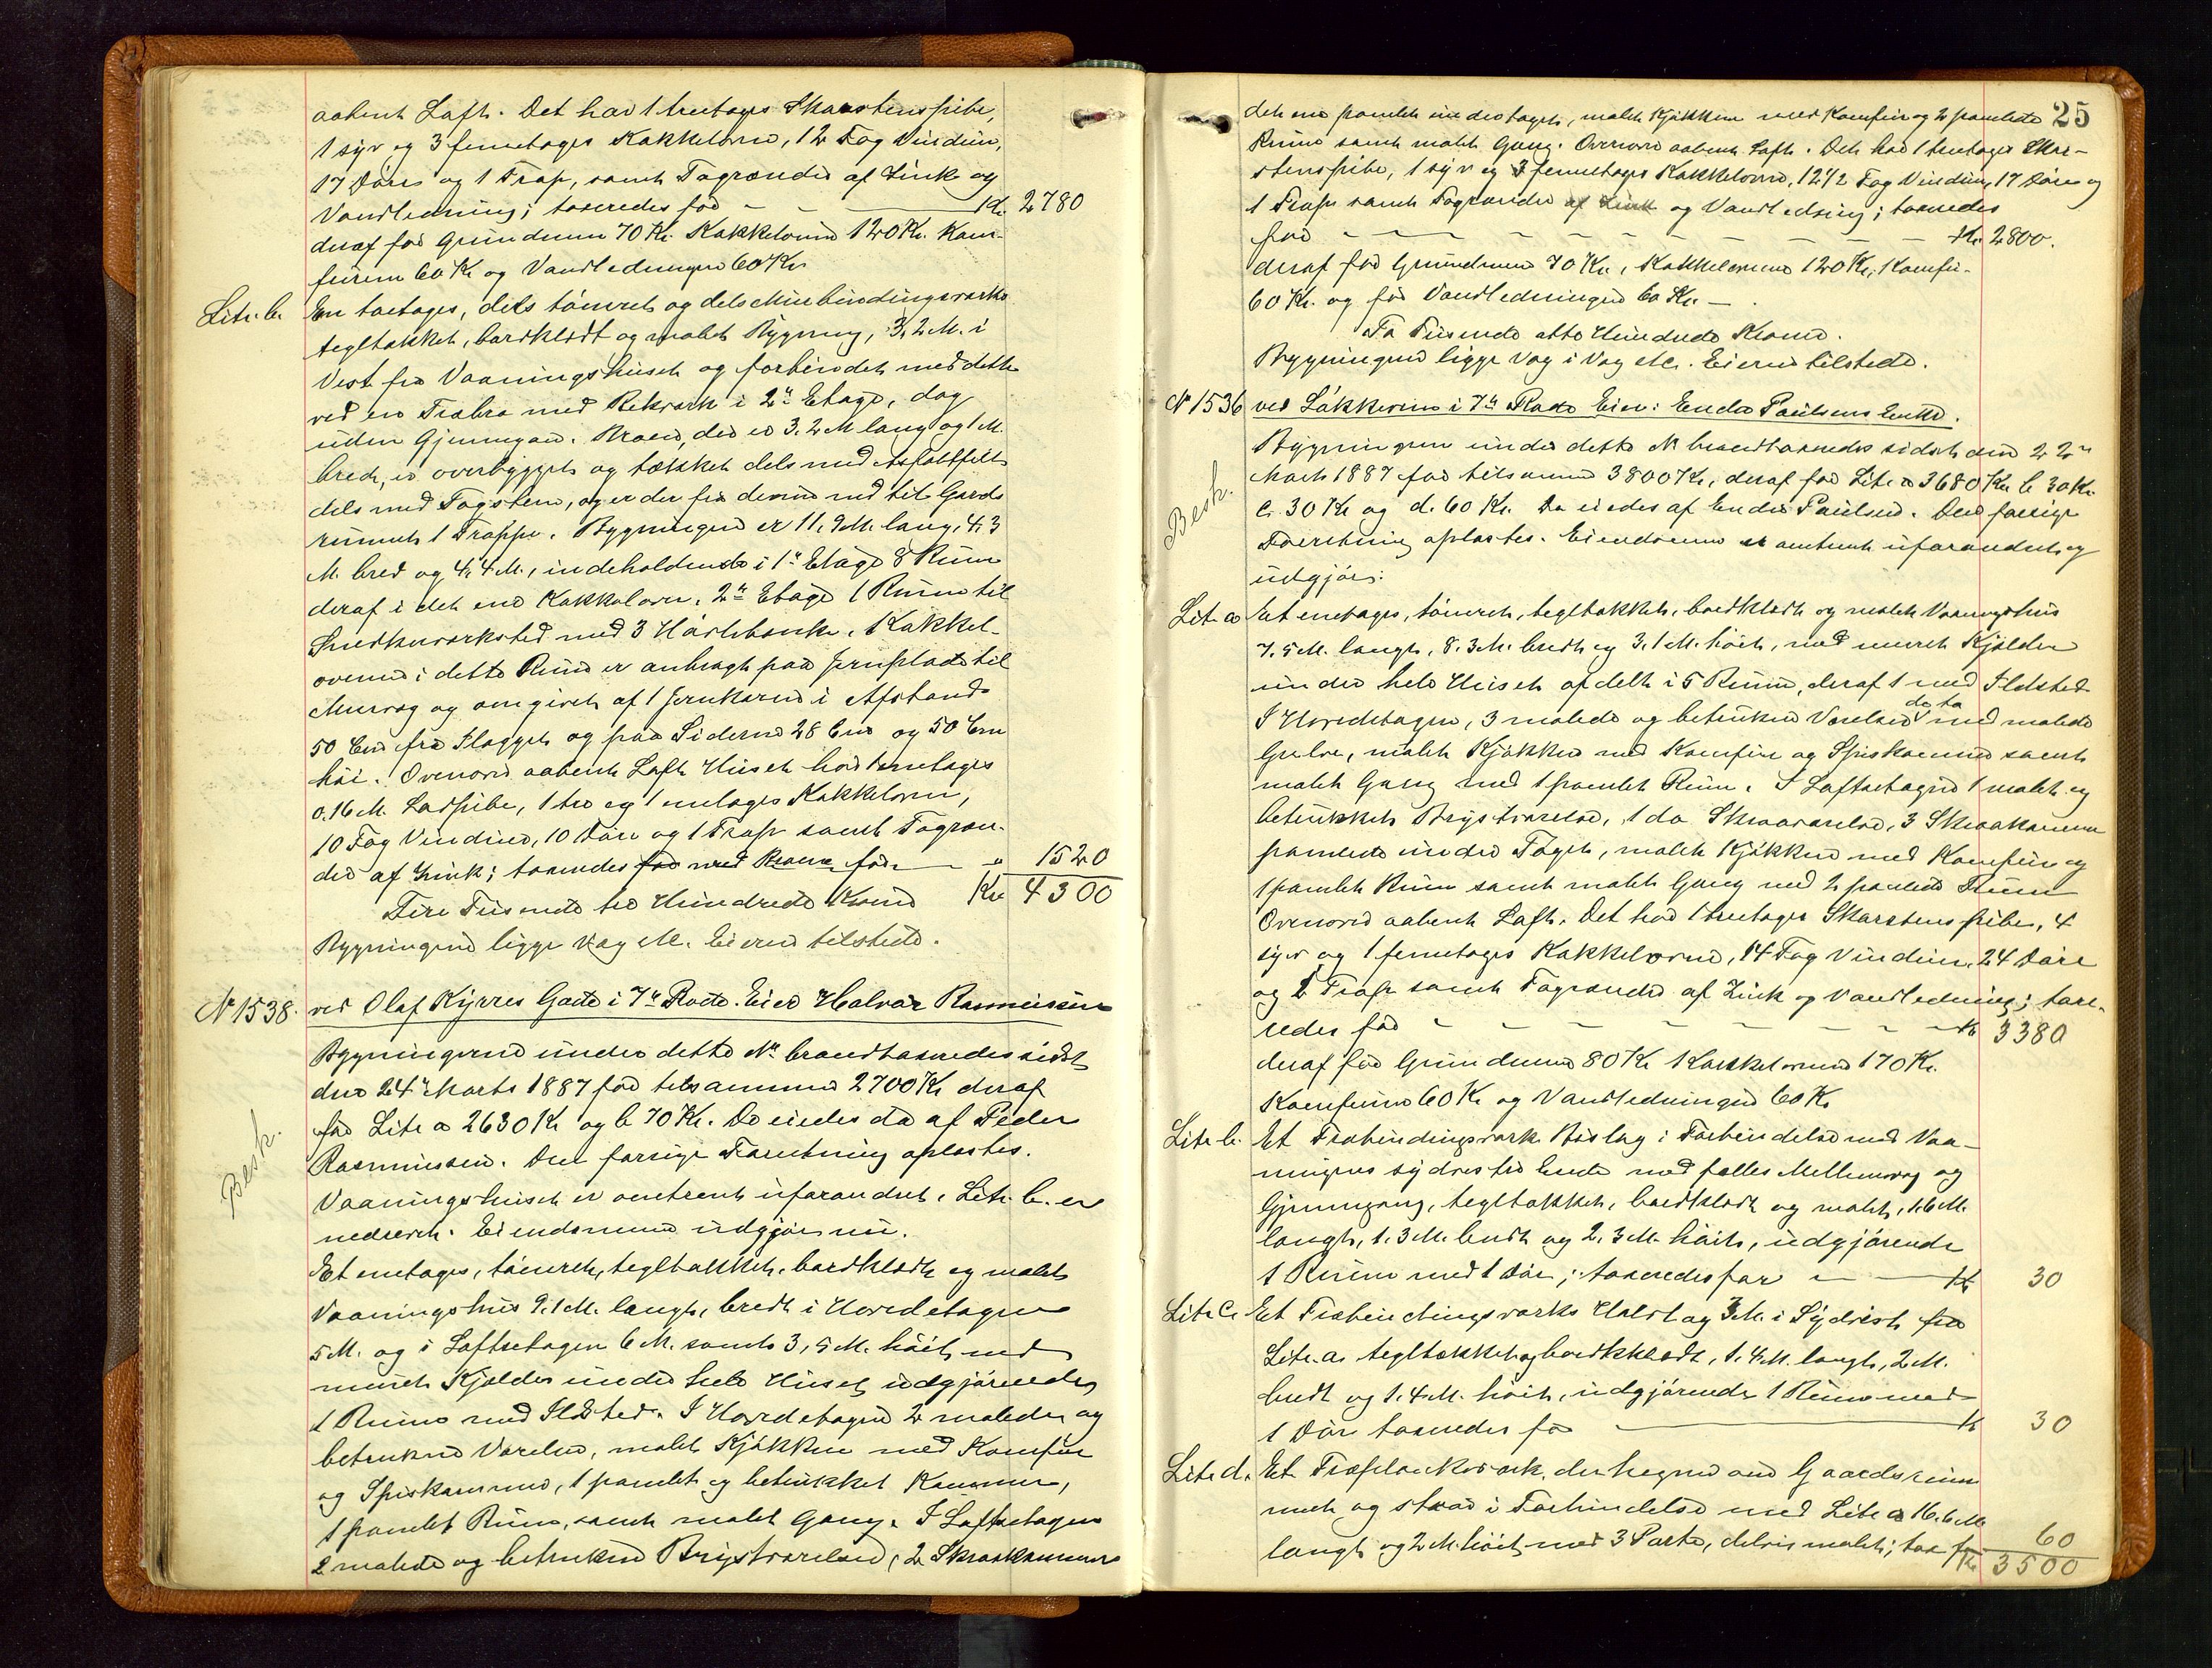 aabent Loft. Det har 1 treetages Skorstenspibe,
1 syv og 3 femetages Kakkelovne, 12 Fag Vinduer,
17 Døre og 1 Trap, samt Tagrender af Zink og
Vandledning; taxeredes for - - Kr 2780
deraf for Grundmuren 70 Kr. Kakkelovne 120 Kr. Kom-
furerne 60 Kr og Vandledningen 60 Kr.
Litr. b. En toetages, dels tømret og dels Murbindingsverks
tegltækket, bordklædt og malet Bygning, 3,2 M. i
Vest fra Vaaningshuset og forbundet med dette
ved en Træbro med Rekværk i 2n Etage, dog
uden Gjennemgang. Broen, der er 3.2 M lang og 1 M.
bred, er overbygget og tækket dels med Asfaltfilt
dels med Tagsten, og er der fra denne ned til Gaards
rummet 1 Trappe. Bygningen er 11,9 M. lang, 4,3
M. bred og 4,4 M., indeholdende i 1e Etage 8 Rum
deraf i det ene Kakkelovn, 2n Etage 1 Rum til
Snedkerværksted med 3 Høvlbænke. Kakkel-
ovnen i dette Rum er anbragt paa Jernplade til
Murvæg og omgivet af 1 Jernkarm i Afstand
50 Cm fra Ilægget og paa Siderne 28 Cm og 50 Cm
høi. Ovenover aabent Loft. Huset har 1 enetages
0.16 M. Ladpibe, 1 tre og 1 enetages Kakkelovn,
10 Fag Vinduer, 10 Døre og 1 Trap samt Tagren-
der af Zink; taxeredes for med Kroner for - " 1520
Fire Tusende tre Hundrede Kroner Kr 4300
Bygningerne ligge Væg M. Eieren tilstede.
No 1538. ved Olaf Kyrres Gade i 7e Rode. Eier Halvor Rasmussen
Besk.
Bygningerne under dette No brandtaxeredes sidst
den 24e Marts 1887 for tilsammen 2700 Kr deraf
for Litr a 2630 Kr og b 70 Kr. De eiedes da af Peder
Rasmussen. Den forrige Forretning oplæstes.
Vaaningshuset er omtrent uforandret. Litr. b. er
nedrevet. Eiendommen udgjør nu.
Et enetages, tømret, tegltækket, bordklædt og malet
Vaaningshus 9,1 M. langt, bredt i Hovedetagen
5 M. og i Loftsetagen 6 M. samt 3,5 M. høit, med
muret Kjelder under hele Huset, udgjørende
1 Rum med Ildsted. I Hovedetagen 2 malede og
betrukne Værelser, malet Kjøkken med Komfur
og Spiskammer, 1 panelet og betrukket Kammer,
1 panelet Rum, samt malet Gang. I Loftsetagen
2 malede og betrukne Brystværelser, 2 Skraakammere
25
det ene panelet under taget, malet Kjøkken med Komfur og 2 panelede
Rum samt malet Gang. Ovenover aabent Loft. Det har 1 treetages Skor-
stenspibe, 1 syv og 3 femetages Kakkelovne, 12 1/2 Fag Vinduer, 17 Døre og
1 Trap samt Tagrender af Zink og Vandledning; taxeredes
for - - - - - - - Kr. 2800.
deraf for Grundmuren 70 Kr., Kakkelovnene 120 Kr., Komfur
60 Kr. og for Vandledningen 60 Kr. -
To Tusende otte Hundrede Kroner.
Bygningerne ligge Væg i Væg etc. Eieren tilstede.
No 1536 ved Løkkeveien i 7e Rode Eier: Endre Paulsens Enke.
Besk.
Bygningerne under dette No brandtaxeredes sidst den 22n
Marts 1887 for tilsammen 3800 Kr, deraf for Litr a 3680 Kr b 30 Kr.
c. 30 Kr og d. 60 Kr. Da eiedes af Endre Paulsen. Den forrige
Forretning oplæstes. Eiendommen er omtrent uforandret og
udgjør:
Litr a Et enetages, tømret, tegltækket, bordklædt og malet Vaaningshus
7.5 M. langt, 8.3 M. bredt og 3,1 M. høit, med muret Kjelder
under hele Huset afdelt i 5 Rum, deraf 1 med Ildsted
I Hovedetagen, 3 malede og betrukne Værelser de to med malede
Gulve, malet Kjøkken med Komfur og Spiskammer samt
malet Gang med 1 panelet Rum. I Loftsetagen 1 malet og
betrukket Brystværelse, 1 do Skraaværelse, 3 Skraakamre
panelede under Taget, malet Kjøkken med Komfur og
1 panelet Rum samt malet Gang med 2 panelede Rum
Ovenover aabent Loft. Det har 1 treetages Skorstenspibe, 4
syv og 1 femetages Kakkelovne, 14 Fag Vinduer, 24 Døre
og 2 Trap samt Tagrender af Zink og Vandledning; taxe-
redes for - - - - - - - Kr 3380
deraf for Grundmuren 80 Kr Kakkelovnene 170 Kr.
Komfurene 60 Kr og Vandledningen 60 Kr
Litr b. Et Træbindingsverk Bislag i Forbindelse med Vaa-
ningens sydvestre Ende med fælles Mellemvæg og
Gjennemgang, tegltækket, bordklædt og malet, 1.6 M.
langt, 1.3 M. bredt og 2,3 M. høit, udgjørende
1 Rum med 1 Dør; taxeredes for - Kr 30
Litr c. Et Træbindingsverks Halvtag 3 M. i Sydvest fra
Litr. a. tegltækket og bordklædt, 1.4 M. langt, 2 M.
bredt og 1.4 M. høit, udgjørende 1 Rum med
1 Dør taxeredes for - Kr 30
Litr d. Et Træplankeverk, der hegner om Gaardsrum
met og staar i Forbindelse med Litr a 16.6 M.
langt og 2 M. høit med 3 Porte, delvis malet; tax for 60
Kr 3500